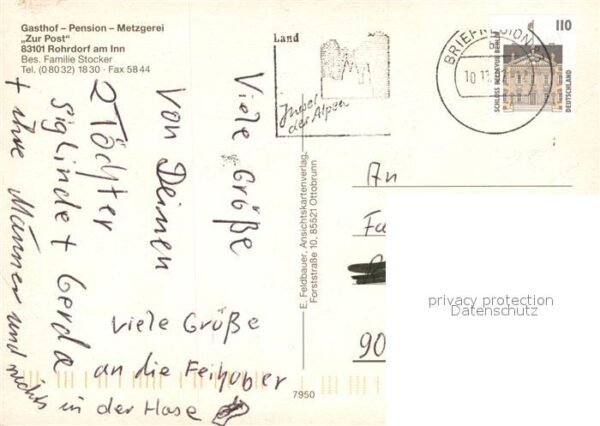 Gasthof – Pension – Metzgerei
„Zur Post"
83101 Rohrdorf am Inn
Bes. Familie Stocker
Tel. (0 80 32) 18 30 · Fax 58 44
Viele Grüße
von Deinen
2 Töchter
Siglinde + Gerda
+ ihre Männer und nichts
in der Hose
viele Grüße
an die Feihaber
7950
E. Feldbauer, Ansichtskartenverlag,
Forststraße 10, 85521 Ottobrunn
Land
Insel
der Alpen
BRIEFREGION
10.11
110
SCHLOSS BELLEVUE BERLIN
DEUTSCHLAND
An
Fa
90
privacy protection
Datenschutz